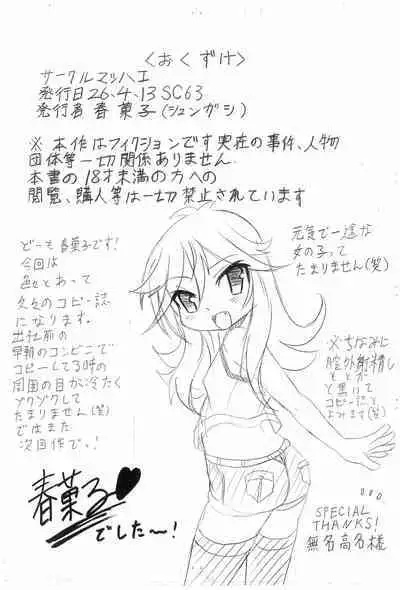 〈おくずけ〉
サークルマッハエ
発行日26.4.13 SC63
発行者 春菓子(シュンガシ)
※本作はフィクションです実在の事件、人物
団体等一切関係ありません.
本書の18才未満の方への
閲覧、購入等は一切禁止されています
元気で一途な
女の子って
たまりません(笑)
どーも春菓子です!
今回は
色々とあって
久々のコピー誌
になります.
出社前の
早朝のコンビニで
コピーしてる時の
周囲の目が冷たく
ゾクゾクして
たまりません(笑)
ではまた
次回作でっ!
※ちなみに
と書いて
コピー誌と
よみます(笑)
春菓子♥
でした〜!
SPECIAL
THANKS!
無名高名様